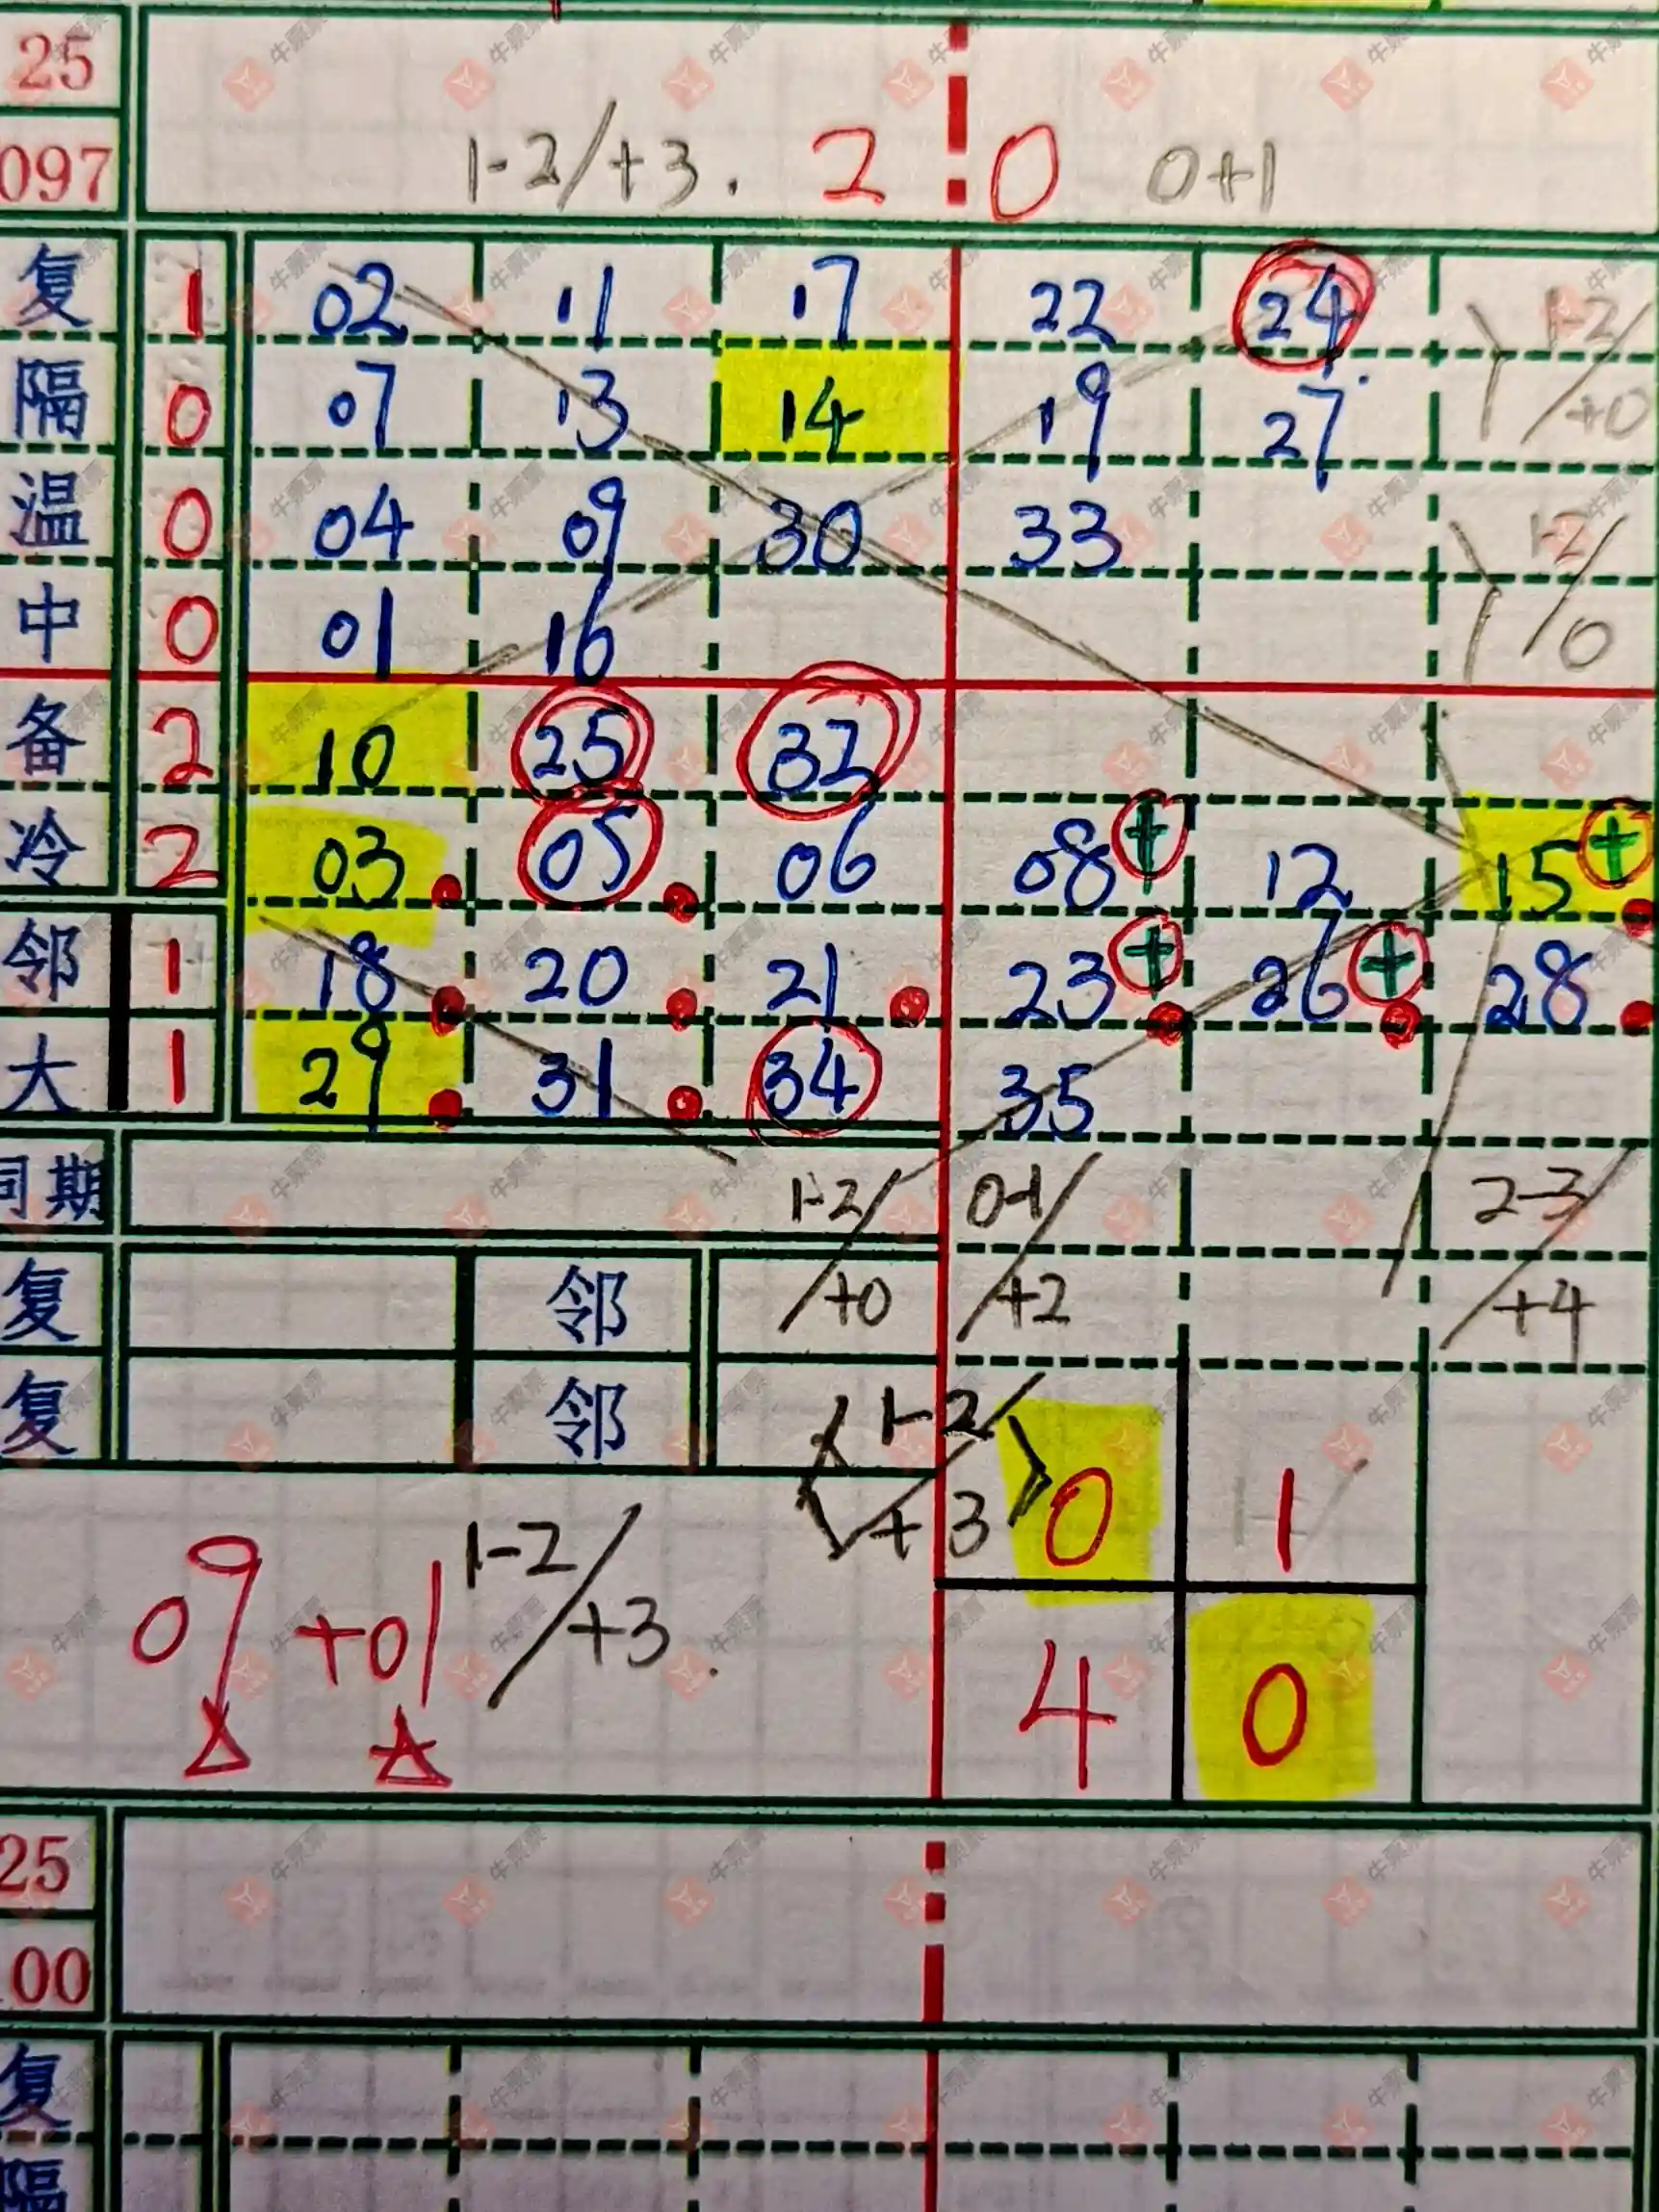 25
097 1-2/+3. 2 0 0+1
复 1 02 11 17 22 24 1-2/+0
隔 0 07 13 14 19 27
温 0 04 09 30 33 1-2/0
中 0 01 16
备 2 10 25 32
冷 2 03 05 06 08+ 12 15+
邻 1 18 20 21 23+ 26+ 28
大 1 29 31 34 35
同期 1-2/+0 0-1/+2 2-3/+4
复 邻
复 邻 1-2/+3 0 1
09+01 1-2/+3. 4 0
25
00
复
隔
牛票票